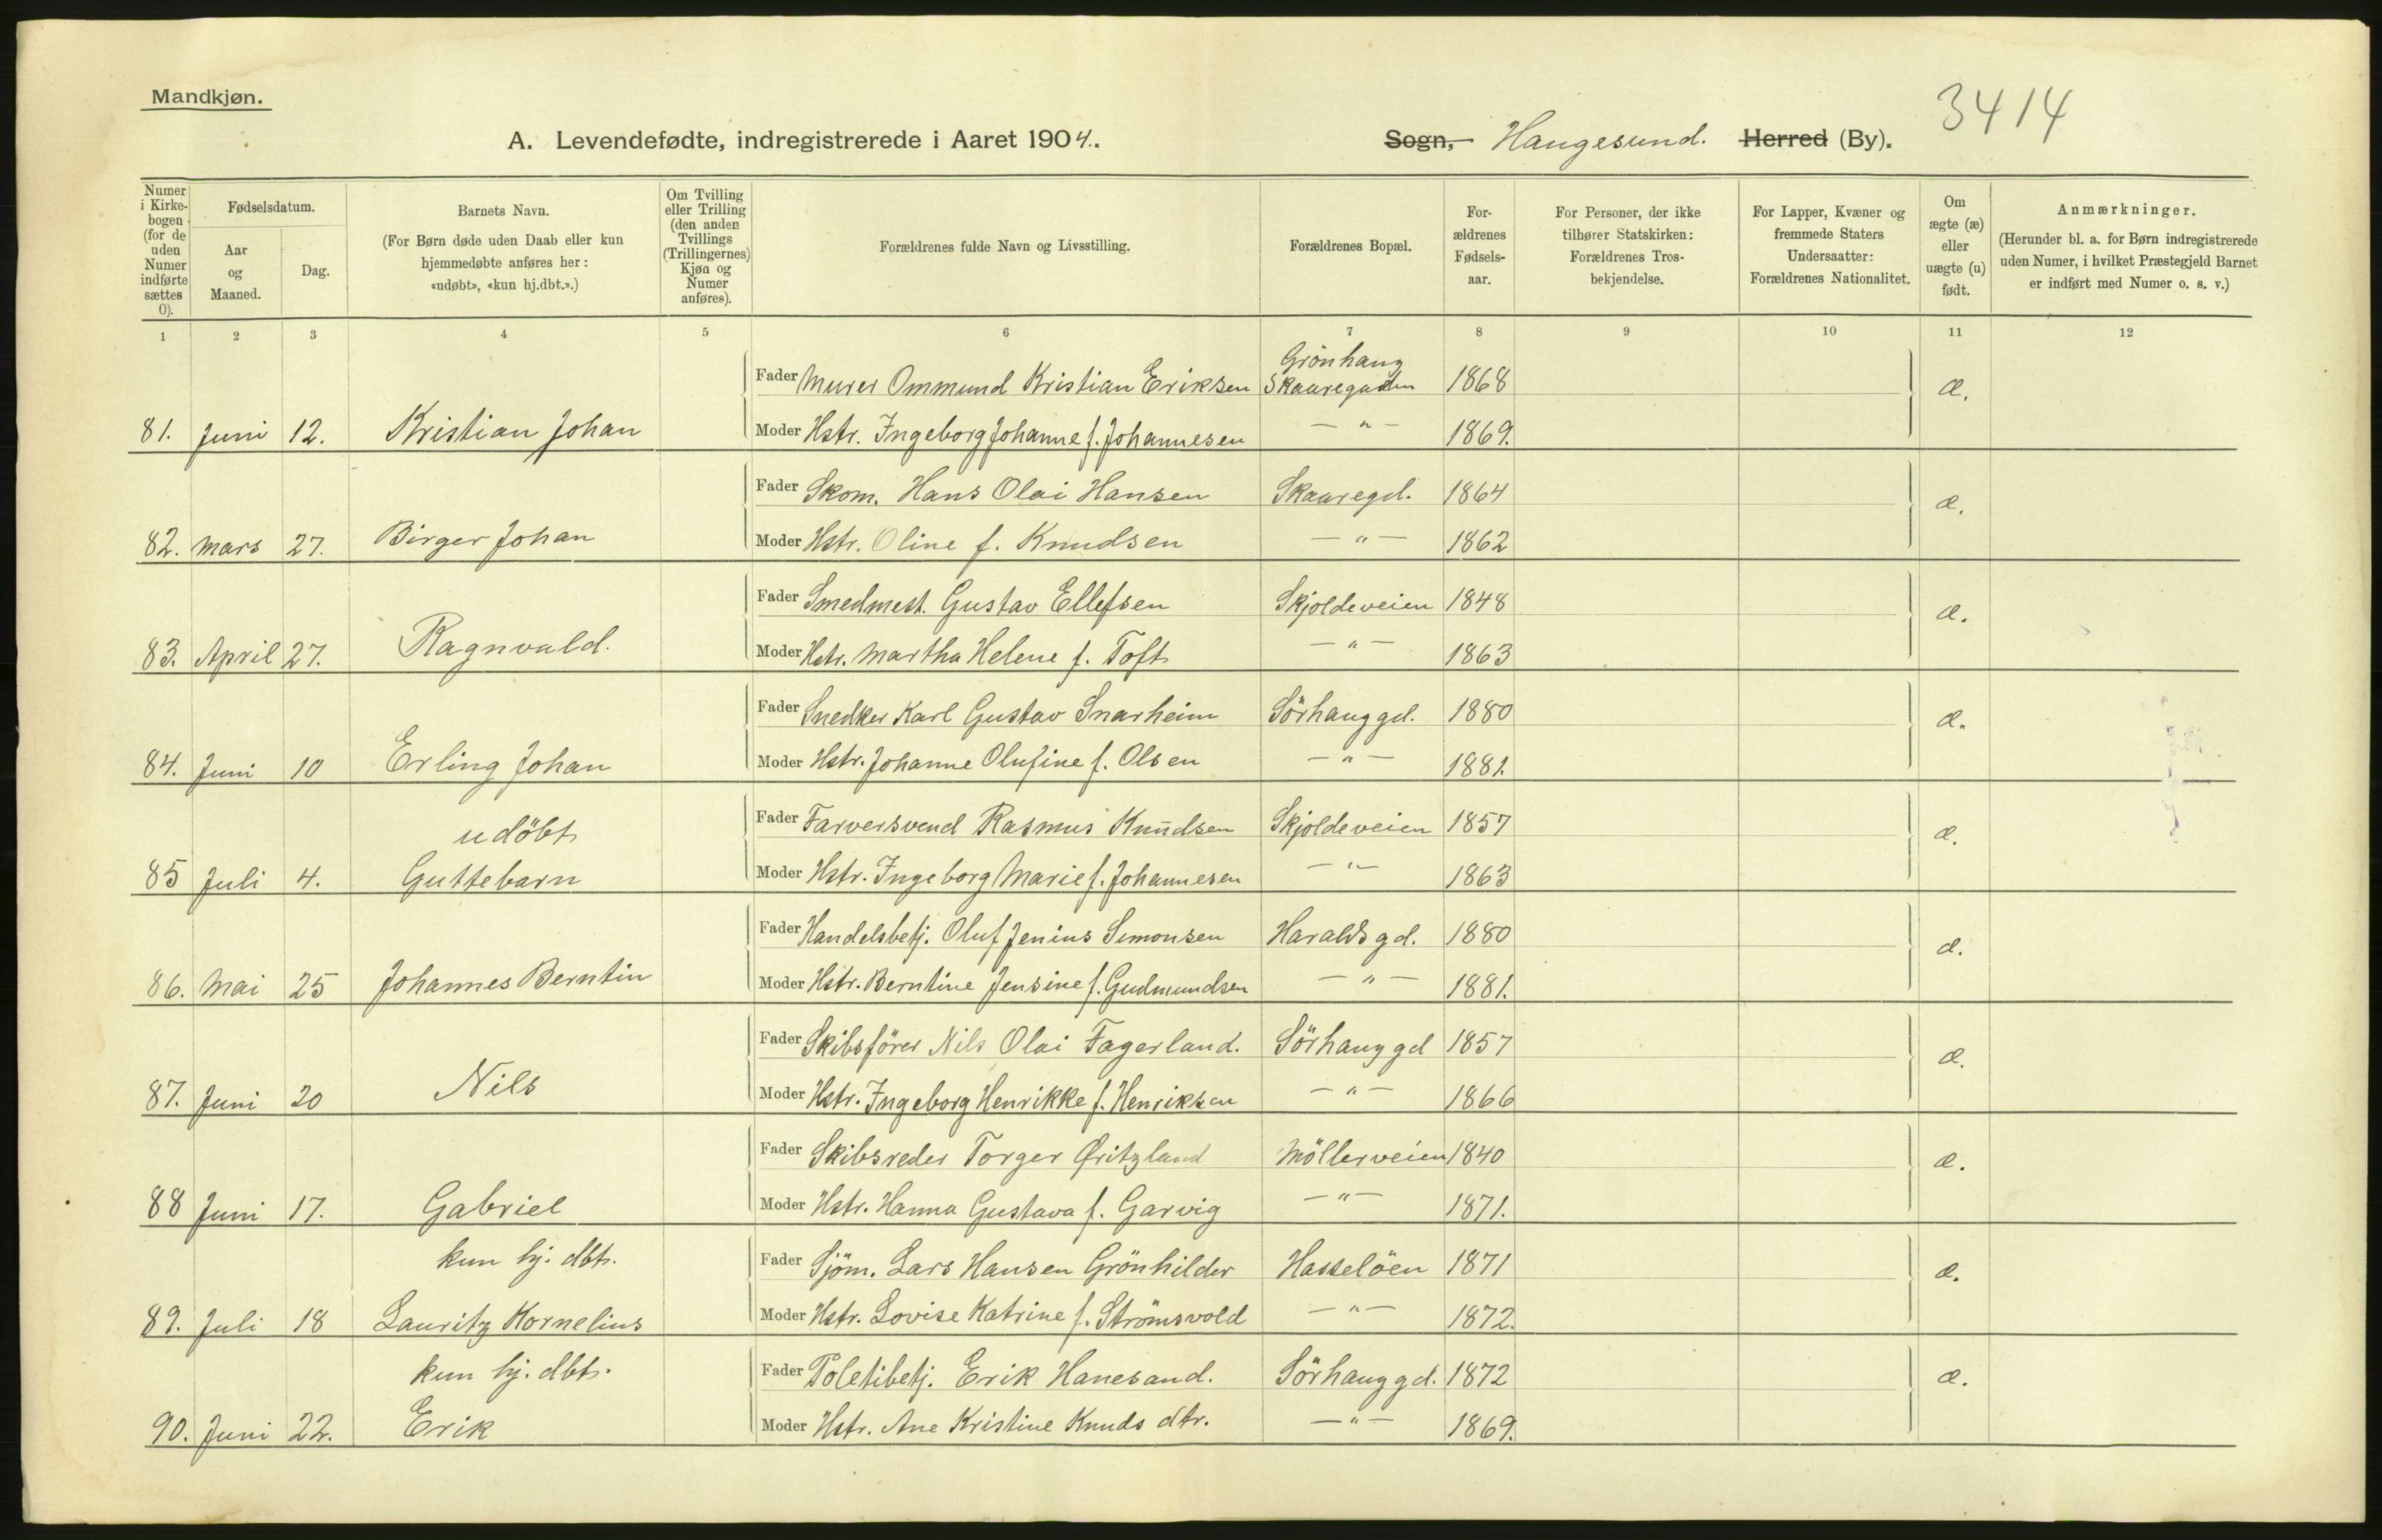 Mandkjøn.
3414
A. Levendefødte, indregistrerede i Aaret 1904.
Sogn, Haugesund. Herred (By).
Numer i Kirkebogen (for de uden Numer indførte sættes 0).
Fødselsdatum.
Aar og Maaned.
Dag.
Barnets Navn.
(For Børn døde uden Daab eller kun hjemmedøbte anføres her: «udøbt», «kun hj.dbt.».)
Om Tvilling eller Trilling (den anden Tvillings (Trillingernes) Kjøn og Numer anføres).
Forældrenes fulde Navn og Livsstilling.
Forældrenes Bopæl.
Forældrenes Fødselsaar.
For Personer, der ikke tilhører Statskirken: Forældrenes Trosbekjendelse.
For Lapper, Kvæner og fremmede Staters Undersaatter: Forældrenes Nationalitet.
Om ægte (æ) eller uægte (u) født.
Anmærkninger.
(Herunder bl. a. for Børn indregistrerede uden Numer, i hvilket Præstegjeld Barnet er indført med Numer o. s. v.)
1 2 3 4 5 6 7 8 9 10 11 12
Grönhaug
Fader Murer Ommund Kristian Eriksen Skaaregaden 1868 æ.
81. Juni 12. Kristian Johan Moder Hstr. Ingeborg Johanne f. Johannesen — " — 1869.
Fader Skom. Hans Olai Hansen Skaaregd. 1864 æ.
82. Mars 27. Birger Johan Moder Hstr. Oline f. Knudsen — " — 1862
Fader Smedmest. Gustav Ellefsen Skjoldeveien 1848 æ.
83. April 27. Ragnvald. Moder Hstr. Martha Helene f. Toft — " — 1863
Fader Snedker Karl Gustav Snarheim Sörhauggd. 1880 æ.
84. Juni 10 Erling Johan Moder Hstr. Johanne Olufine f. Olsen — " — 1881.
udöbt Fader Farversvend Rasmus Knudsen Skjoldeveien 1857 æ.
85 Juli 4. Guttebarn Moder Hstr. Ingeborg Marie f. Johannesen — " — 1863
Fader Handelsbetj. Oluf Jenius Simonsen Haraldsgd. 1880 æ.
86. Mai 25 Johannes Berntin Moder Hstr. Berntine Jensine f. Gudmundsen — " — 1881.
Fader Skibsförer Nils Olai Fagerland. Sörhauggd 1857 æ.
87. Juni 20 Nils Moder Hstr. Ingeborg Henrikke f. Henriksen — " — 1866
Fader Skibsreder Torger Øritzland Möllerveien 1840 æ.
88 Juni 17. Gabriel Moder Hstr. Hanna Gustava f. Garvig — " — 1871.
kun hj. dbt. Fader Sjöm. Lars Hansen Grönhilder Hasselöen 1871 æ.
89. Juli 18 Lauritz Kornelius Moder Hstr. Lovise Katrine f. Strömsvold — " — 1872.
kun hj. dbt. Fader Poletibetj. Erik Hanesand. Sörhauggd. 1872 æ.
90. Juni 22. Erik Moder Hstr. Ane Kristine Knuds dtr. — " — 1869.